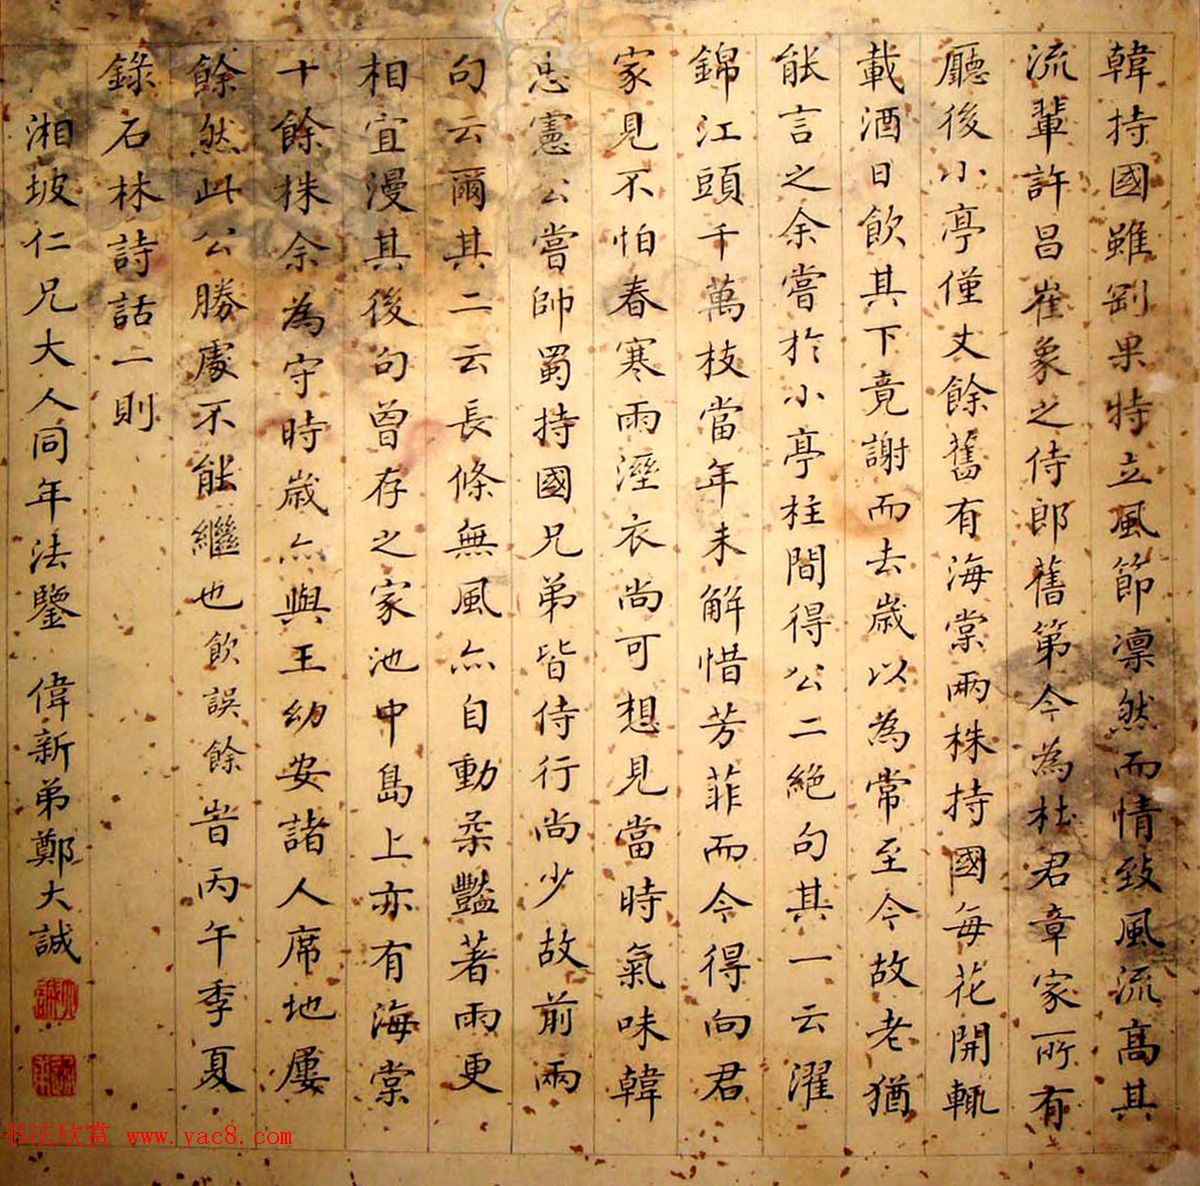 韓持國雖剛果特立風節凛然而情致風流高其
流輩許昌崔象之侍郎舊第今為杜君章家所有
廳後小亭僅丈餘舊有海棠兩株持國每花開輒
載酒日飲其下竟謝而去歲以為常至今故老猶
能言之余嘗於小亭柱間得公二絕句其一云濯
錦江頭千萬枝當年未解惜芳菲而今得向君
家見不怕春寒雨溼衣尚可想見當時氣味韓
忠憲公嘗帥蜀持國兄弟皆侍行尚少故前兩
句云爾其二云長條無風亦自動柔豔著雨更
相宜漫其後句曾存之家池中島上亦有海棠
十餘株余為守時歲亦與王幼安諸人席地屢
餘然此公勝處不能繼也飲誤餘旹丙午季夏
錄石林詩話二則
湘坡仁兄大人同年法鑒 偉新弟鄭大誠
书法欣赏 www.yac8.com